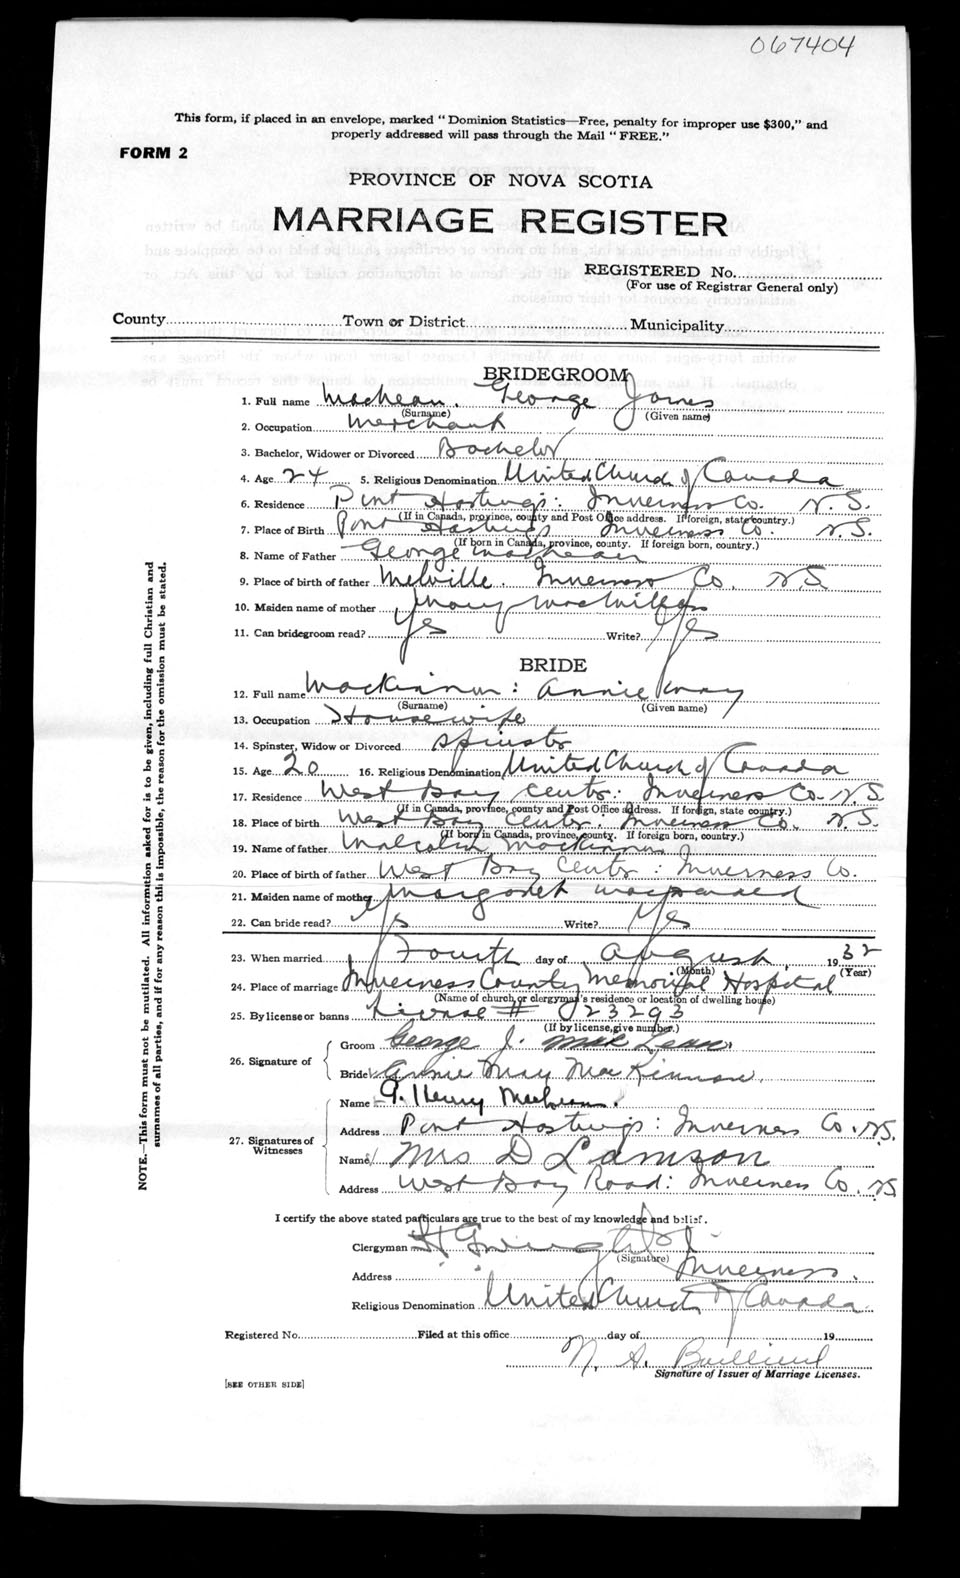 067404
This form, if placed in an envelope, marked "Dominion Statistics—Free, penalty for improper use $300," and
properly addressed will pass through the Mail "FREE."
FORM 2
PROVINCE OF NOVA SCOTIA
MARRIAGE REGISTER
REGISTERED No.
(For use of Registrar General only)
County Town or District Municipality
BRIDEGROOM
1. Full name MacLean. George James
(Surname) (Given name)
2. Occupation Merchant
3. Bachelor, Widower or Divorced Bachelor
4. Age 24 5. Religious Denomination United Church of Canada
6. Residence Port Hastings: Inverness Co. N.S.
(If in Canada, province, county and Post Office address. If foreign, state country.)
7. Place of Birth Port Hastings Inverness Co. N.S.
(If born in Canada, province, county. If foreign born, country.)
8. Name of Father George MacLean
9. Place of birth of father Melville. Inverness Co. N.S.
10. Maiden name of mother Mary
11. Can bridegroom read? Yes Write? Yes
BRIDE
12. Full name MacKinnon: Annie May
(Surname) (Given name)
13. Occupation Housewife
14. Spinster, Widow or Divorced Spinster
15. Age 20 16. Religious Denomination United Church of Canada
17. Residence West Bay Centre: Inverness Co. N.S
(If in Canada, province, county and Post Office address. If foreign, state country.)
18. Place of birth West Bay Centre. Inverness Co. N.S.
(If born in Canada, province, county. If foreign born, country.)
19. Name of father Malcolm MacKinnon
20. Place of birth of father West Bay Centre: Inverness Co.
21. Maiden name of mother Margaret
22. Can bride read? Yes Write? Yes
23. When married Fourth day of August, 1932
(Month) (Year)
24. Place of marriage Inverness County Memorial Hospital
(Name of church or clergyman's residence or location of dwelling house)
25. By license or banns License # 023293
(If by license, give number.)
26. Signature of
Groom George J. MacLean
Bride Annie May MacKinnon.
27. Signatures of Witnesses
Name G. Henry MacLean.
Address Port Hastings: Inverness Co. N.S.
Name Mrs D Lamson
Address West Bay Road: Inverness Co. N.S
I certify the above stated particulars are true to the best of my knowledge and belief.
Clergyman
(Signature)
Address Inverness.
Religious Denomination United Church of Canada
Registered No. Filed at this office day of 19
N. A.
Signature of Issuer of Marriage Licenses.
[SEE OTHER SIDE]
NOTE.—This form must not be mutilated. All information asked for is to be given, including full Christian and
surnames of all parties, and if for any reason this is impossible, the reason for the omission must be stated.